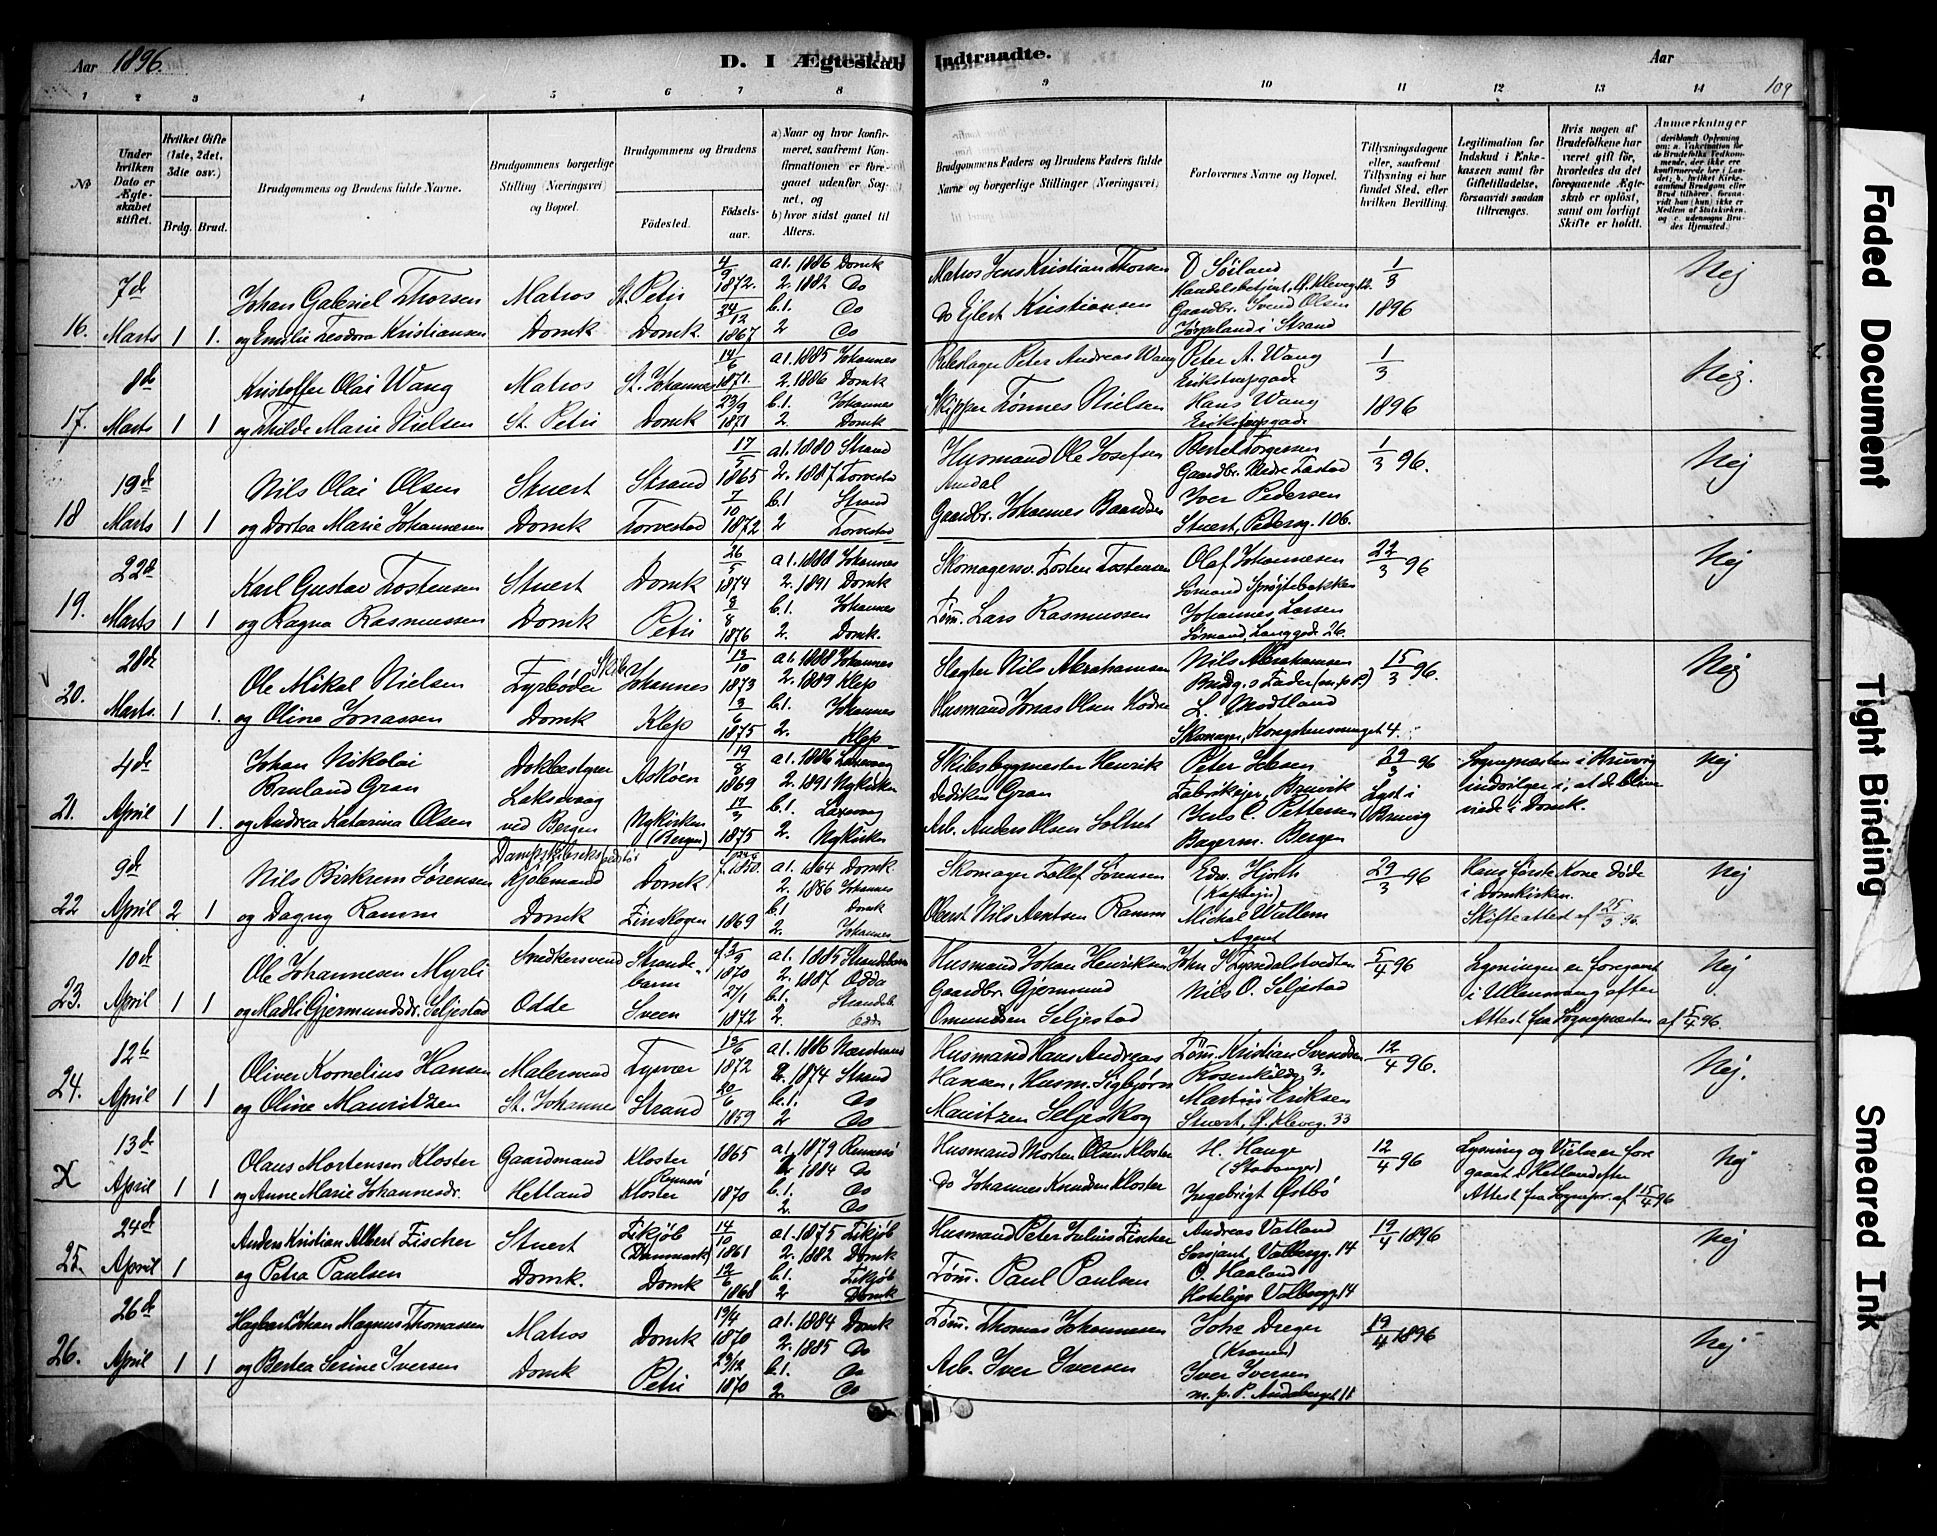 Aar 1896.
D. I Ægteskab Indtraadte.
Aar
109
1 2 3 4 5 6 7 8 9 10 11 12 13 14
№
Under hvilken Dato er Ægteskabet stiftet.
Hvilket Gifte (1ste, 2det, 3die osv.)
Brdg. Brud.
Brudgommens og Brudens fulde Navne.
Brudgommens borgerlige Stilling (Næringsvei) og Bopæl.
Brudgommens og Brudens
Födested.
Födselsaar.
a) Naar og hvor konfirmeret, saafremt Konfirmationen er foregaaet udenfor Sognet, og
b) hvor sidst gaaet til Alters.
Brudgommens Faders og Brudens Faders fulde Navne og borgerlige Stillinger (Næringsvei)
Forlovernes Navne og Bopæl.
Tillysningsdagene eller, saafremt Tillysning ei har fundet Sted, efter hvilken Bevilling.
Legitimation for Indskud i Enkekassen samt for Giftetilladelse, forsaavidt saadan tiltrænges.
Hvis nogen af Brudefolkene har været gift för, hvorledes da det foregaaende Ægteskab er oplöst, samt om lovligt Skifte er holdt.
Anmærkninger
16. 7de Marts 1 1. Johan Gabriel Thorsen Matros St. Petri 4/9 1872. a1. 1886 Domk
og Emilie Teodora Kristiansen Domk. Domk. 24/12 1867 2. 1882 Do b.1. Do 2 Do
Matros Jens Kristian Thorsen
Do Eilert Kristiansen
O Söiland Handelsbetjent, Ø. Kleveg. 12.
Gaardbr. Svend Olsen Jørpeland i Strand
1/3 1896
Nej
17. 8de Marts 1 1 Kristoffer Olai Wang Matros St. Johannes 14/6 1871. a1. 1885 Johannes
og Thilde Marie Nielsen St. Petri Domk 23/9 1871 2. 1886 Domk b.1. Johannes 2 Domk
Rebslager Peter Andreas Wang
Skipper Tönnes Nielsen
Peter A. Wang Erikstrupgade
Hans Wang Erikstrupgade
1/3 1896
Nej.
18 19de Marts 1 1 Nils Olai Olsen Stuert Strand 17/5 1865 a1. 1880 Strand
og Dortea Marie Johannesen Domk Torvestad 7/10 1872 2. 1887 Torvestad b.1 Strand 2 Torvestad
Husmand Ole Josefsen
Gaardbr. Johannes Baardsen
Bertel Torgersen
Gaardbr. Nedre Tastad
Iver Pedersen
Stuert, Pedersg. 106.
1/3 96.
Nej
19. 22de Marts 1 1 Karl Gustav Tostensen Stuert Domk 26/5 1874 a1. 1888 Johannes
og Ragna Rasmussen Domk Petri 8/8 1876 2. 1891 Domk b.1. Johannes 2. Domk.
Skomagersv. Tosten Tostensen
Töm. Lars Rasmussen
Olaf Johannesen
Sömand Spröitebakken
Johannes Larsen
Sömand, Langgade 26.
22/3 96
Nej
20. 28de Marts. 1 1. Ole Mikal Nielsen Fyrböder Skibs Johannes 13/10 1873 a1. 1888 Johannes
og Oline Jonassen Domk Klep 13/6 1875 2. 1889 Klep b.1. Johannes 2. Klep
Slagter Nils Abrahamsen
Husmand Jonas Olsen
Nils Abrahamsen
Brudg.s Fader (m.p.P.)
L. Modtland
Skomager, Kongstensvænget 4.
15/3 96.
Nej
21. 4de April 1 1. Johan Nikolai
Bruland Gran Dokbestyrer Laksevaag ved Bergen Askøen 19/8 1869 a1. 1886 Laxevaag
og Andrea Katarina Olsen Nykirken (Bergen) 17/3 1875 2. 1891 Nykirken b.1. Laxevaag 2. Nykirken
Skibsbygmester Henrik
Dediken Gran
Arb. Anders Olsen Soltvet
Peter Jebsen
Fabrikeier, Bruvik
Jens C. Pettersen
Bagerm. Bergen
29/3 96
Lyst i Bruvig
Sognepræsten i Bruvig
indvilger i, at de blive
viede i Domk.
Nej
22 9de April 2 1 Nils Birkrem Sörensen Dampskibsekspeditör Kjölemand Domk 1850. a1. 1864 Domk
og Dagny Ramm Domk 1869 2. 1886 Johannes b.1 Domk 2. Johannes
Skomager Tollef Sørensen
Nils Arntsen Ramm
Edv. Hjorth
(Kaptejn)
Michal Wallem
Agent
29/3 96
Hans første Kone døde
i Domkirken.
Skifteattest af 25/3 96.
Nej
23. 10de April 1 1 Ole Johannesen Myrli Snedkersvend Strandebarm 13/9 1870 a1. 1885 Strandebarm
og Madli Gjermundsdr. Seljestad Odde Sveen 27/1 1872 2. 1887 Odda b.1. Strandeb. 2. Odda
Husmand Johan Henriksen
Gaardbr. Gjermund
Omundsen Seljestad
John S. Tyssedalstvedten
Nils O. Seljestad
5/4 96
Lysningen er foregaaet
i Ullensvang efter
Attest fra Sognepræsten af 5/4 96.
Nej
24. 12te April 1 1 Oliver Kornelius Hansen Malersvend Tysvær 12/6 1872 a1. 1886 Nærstrand
og Oline Mauritzen St. Johannes Strand 20/6 1859 2. 1874 Strand b.1. Do 2 Do
Husmand Hans Andreas
Hansen, Husm. Sigbjørn
Mauritzen Seljeskog
Töm. Kristian Svendsen
Rosenkildeg. 3.
Martin Eriksen
Stuert, Ø. Kleveg. 33
12/4 96.
Nej.
X 13de April 1 1 Olaus Mortensen Kloster Gaardmand Kloster 1865 a1. 1879 Rennesö
og Anne Marie Johannesdr. Hetland Kloster 1870 2. 1884 Do b.1. Do 2. Do
Husmand Morten Olsen Kloster
Do Johannes Knudsen Kloster
H. Hauge
(Stavanger)
Ingebrigt Østbö
12/4 96
Lysning og Vielse er fore
gaaet i Hetland efter
Attest fra Sognepr. af 15/4 96
Nej
25. 24de April 1 Anders Kristian Albert Fischer Stuert Tikjöb (Danmark) 14/10 1861 a1. 1875 Tikjöb
og Petra Paulsen Domk. Domk 12/6 1868 2. 1882 Domk b.1. Tikjöb 2 Domk
Husmand Peter Julius Fischer
Töm. Paul Paulsen
Andreas Vatland
Sersjant, Valbergg. 14
O. Haaland
Hoteleier Valbergg. 14
19/4 1896
Nej
26. 26de April 1 1 Hagbart Johan Magnus Thomassen Matros Domk 19/4 1870 a1. 1884 Domk
og Bertea Serine Iversen Domk Petri 23/12 1870 2. 1885 Do b.1. Do 2. Do
Töm. Thomas Johannesen
Arb. Iver Iversen
Johs Dreyer
(Kranen)
Iver Iversen
m.p.P. Andasberget 11
19/4 1896
Nej
Faded Document
Tight Binding
Smeared Ink